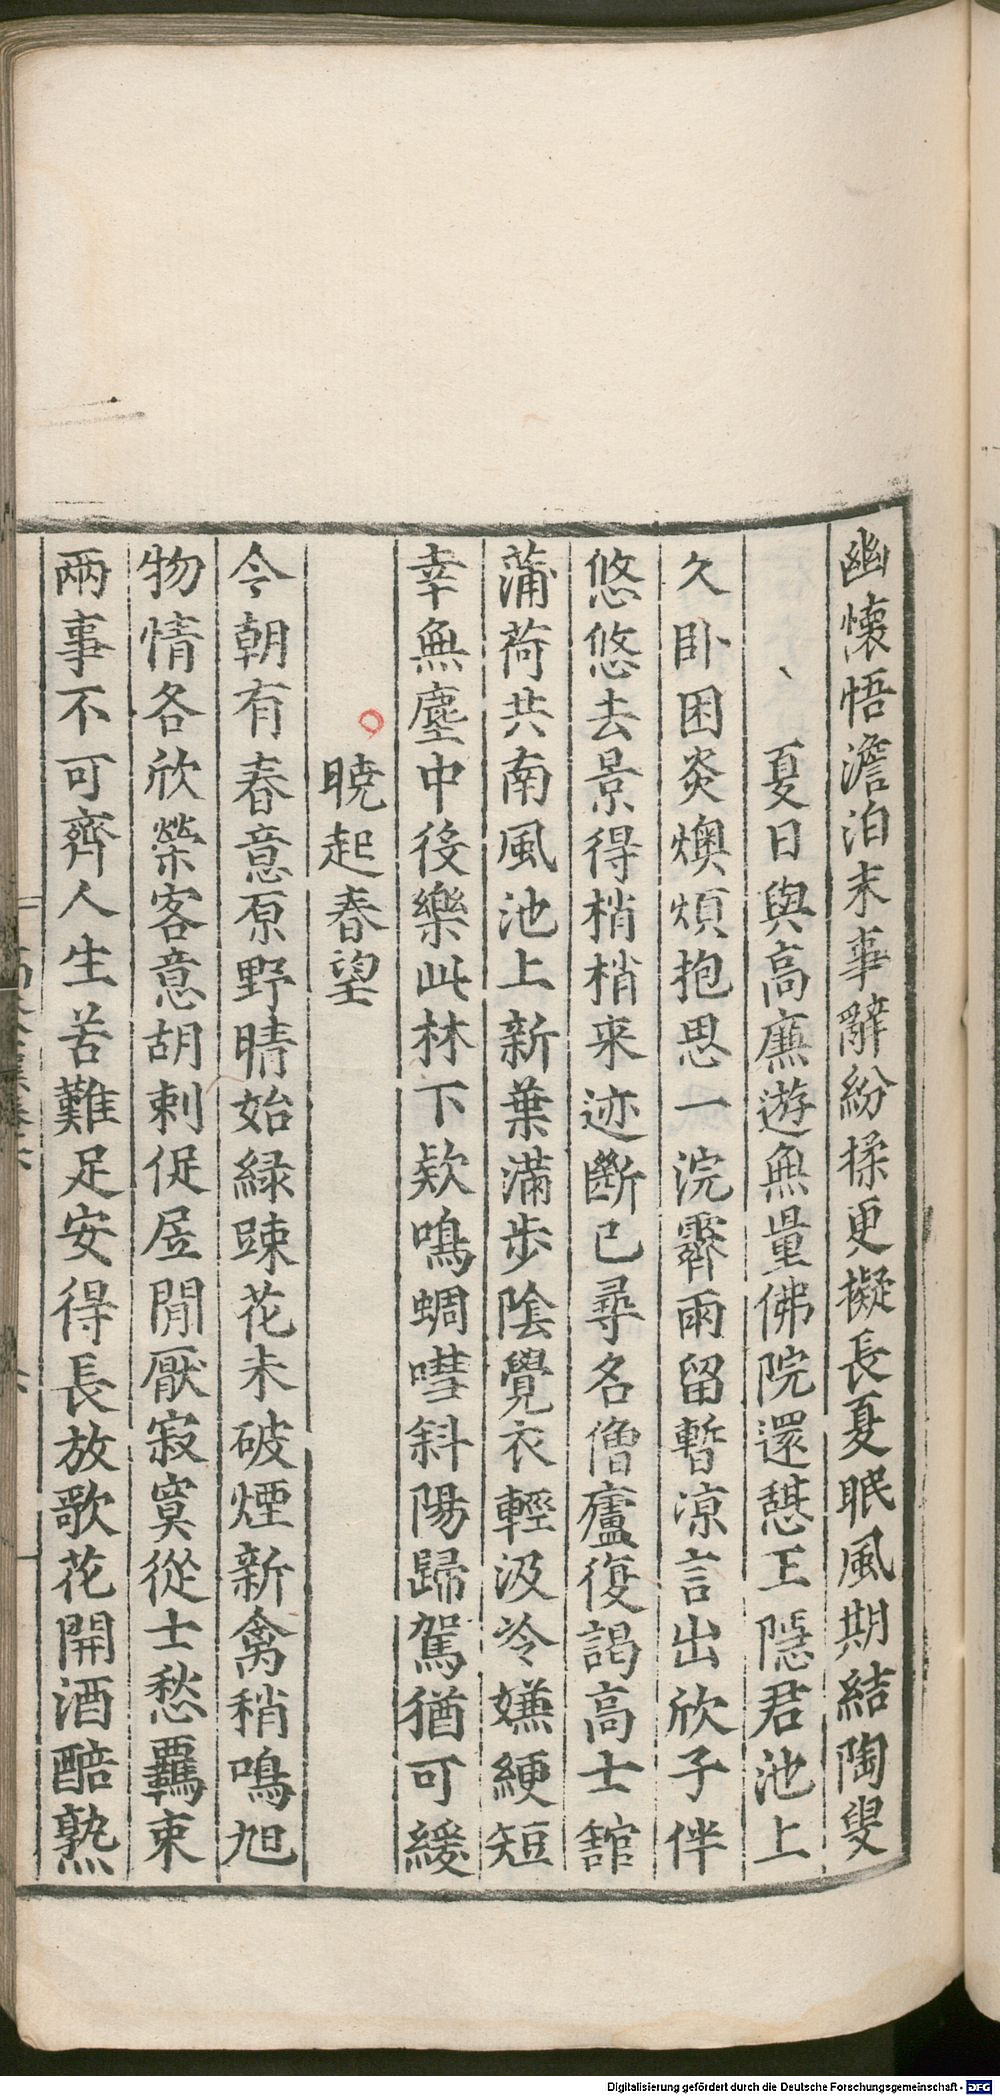 幽懷悟澹泊末事辭紛揉更擬長夏眠風期結陶叟
夏日與高廉遊無量佛院還憇王隱君池上
久卧困炎燠煩抱思一浣霽雨留暫凉言出欣子伴
悠悠去景得梢梢来迹斷已尋名僧廬復謁高士舘
蒲荷共南風池上新葉滿步陰覺衣輕汲冷嫌綆短
幸無塵中役樂此林下欵鳴蜩嘒斜陽歸駕猶可緩
曉起春望
今朝有春意原野晴始緑疎花未破煙新禽稍鳴旭
物情各欣榮客意胡刺促居閒厭寂寞從士愁羈束
兩事不可齊人生苦難足安得長放歌花開酒醅熟
Digitalisierung gefördert durch die Deutsche Forschungsgemeinschaft - DFG